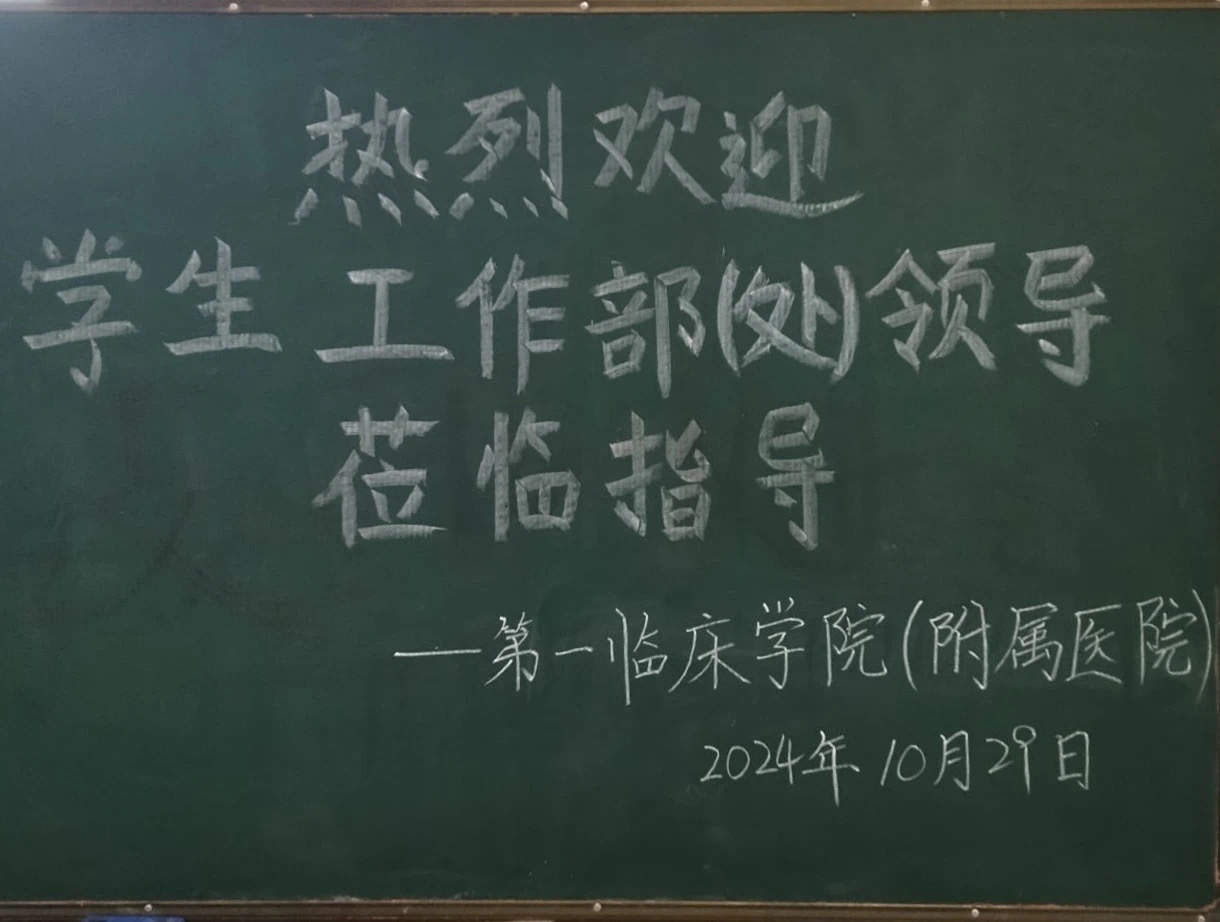 热烈欢迎
学生工作部(处)领导
莅临指导
—第一临床学院(附属医院)
2024年10月29日